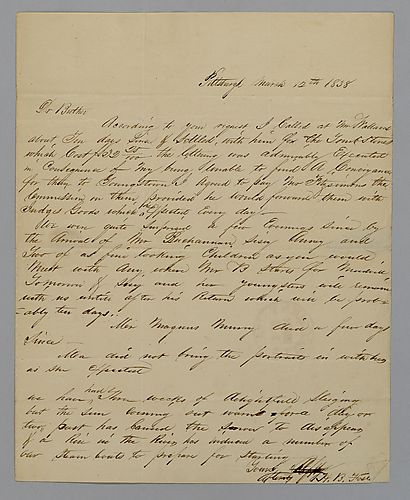 Pittsburgh March 12th 1838
Dr Brother
According to your request I Called at Mr Williams
about Ten days Since & Settled with him for the Tomb Stone
which Cost $32 for the lettering was admirably Executed
in Consequence of my being unable to find A Conveyance
for them to Youngstown I Agreed to pay Mr Fitzsimons the
Commission on them provided he would forward them with
Judges Goods which he Expected Every day
We were quite Surprised a few Evenings Since by
the Arrival of Mr Buchannan Sissy Anny and
Two of as fine looking Children as you would
Meet with Any where Mr B Starts for
Tomorrow & Sissy and her youngsters will remain
with us untill after his Return which will be prob-
ably ten days.
Mrs Magnus Murry died a few days
Since
did not bring the portraits in with her
as she Expected
we have had Some weeks of delightfull Sleighing
but the Sun Coming out warm for a day or
two past has Caused the Snow to dissappear
& a rise in the River has induced a number of
our Steam boats to prepare for Starting
Yours